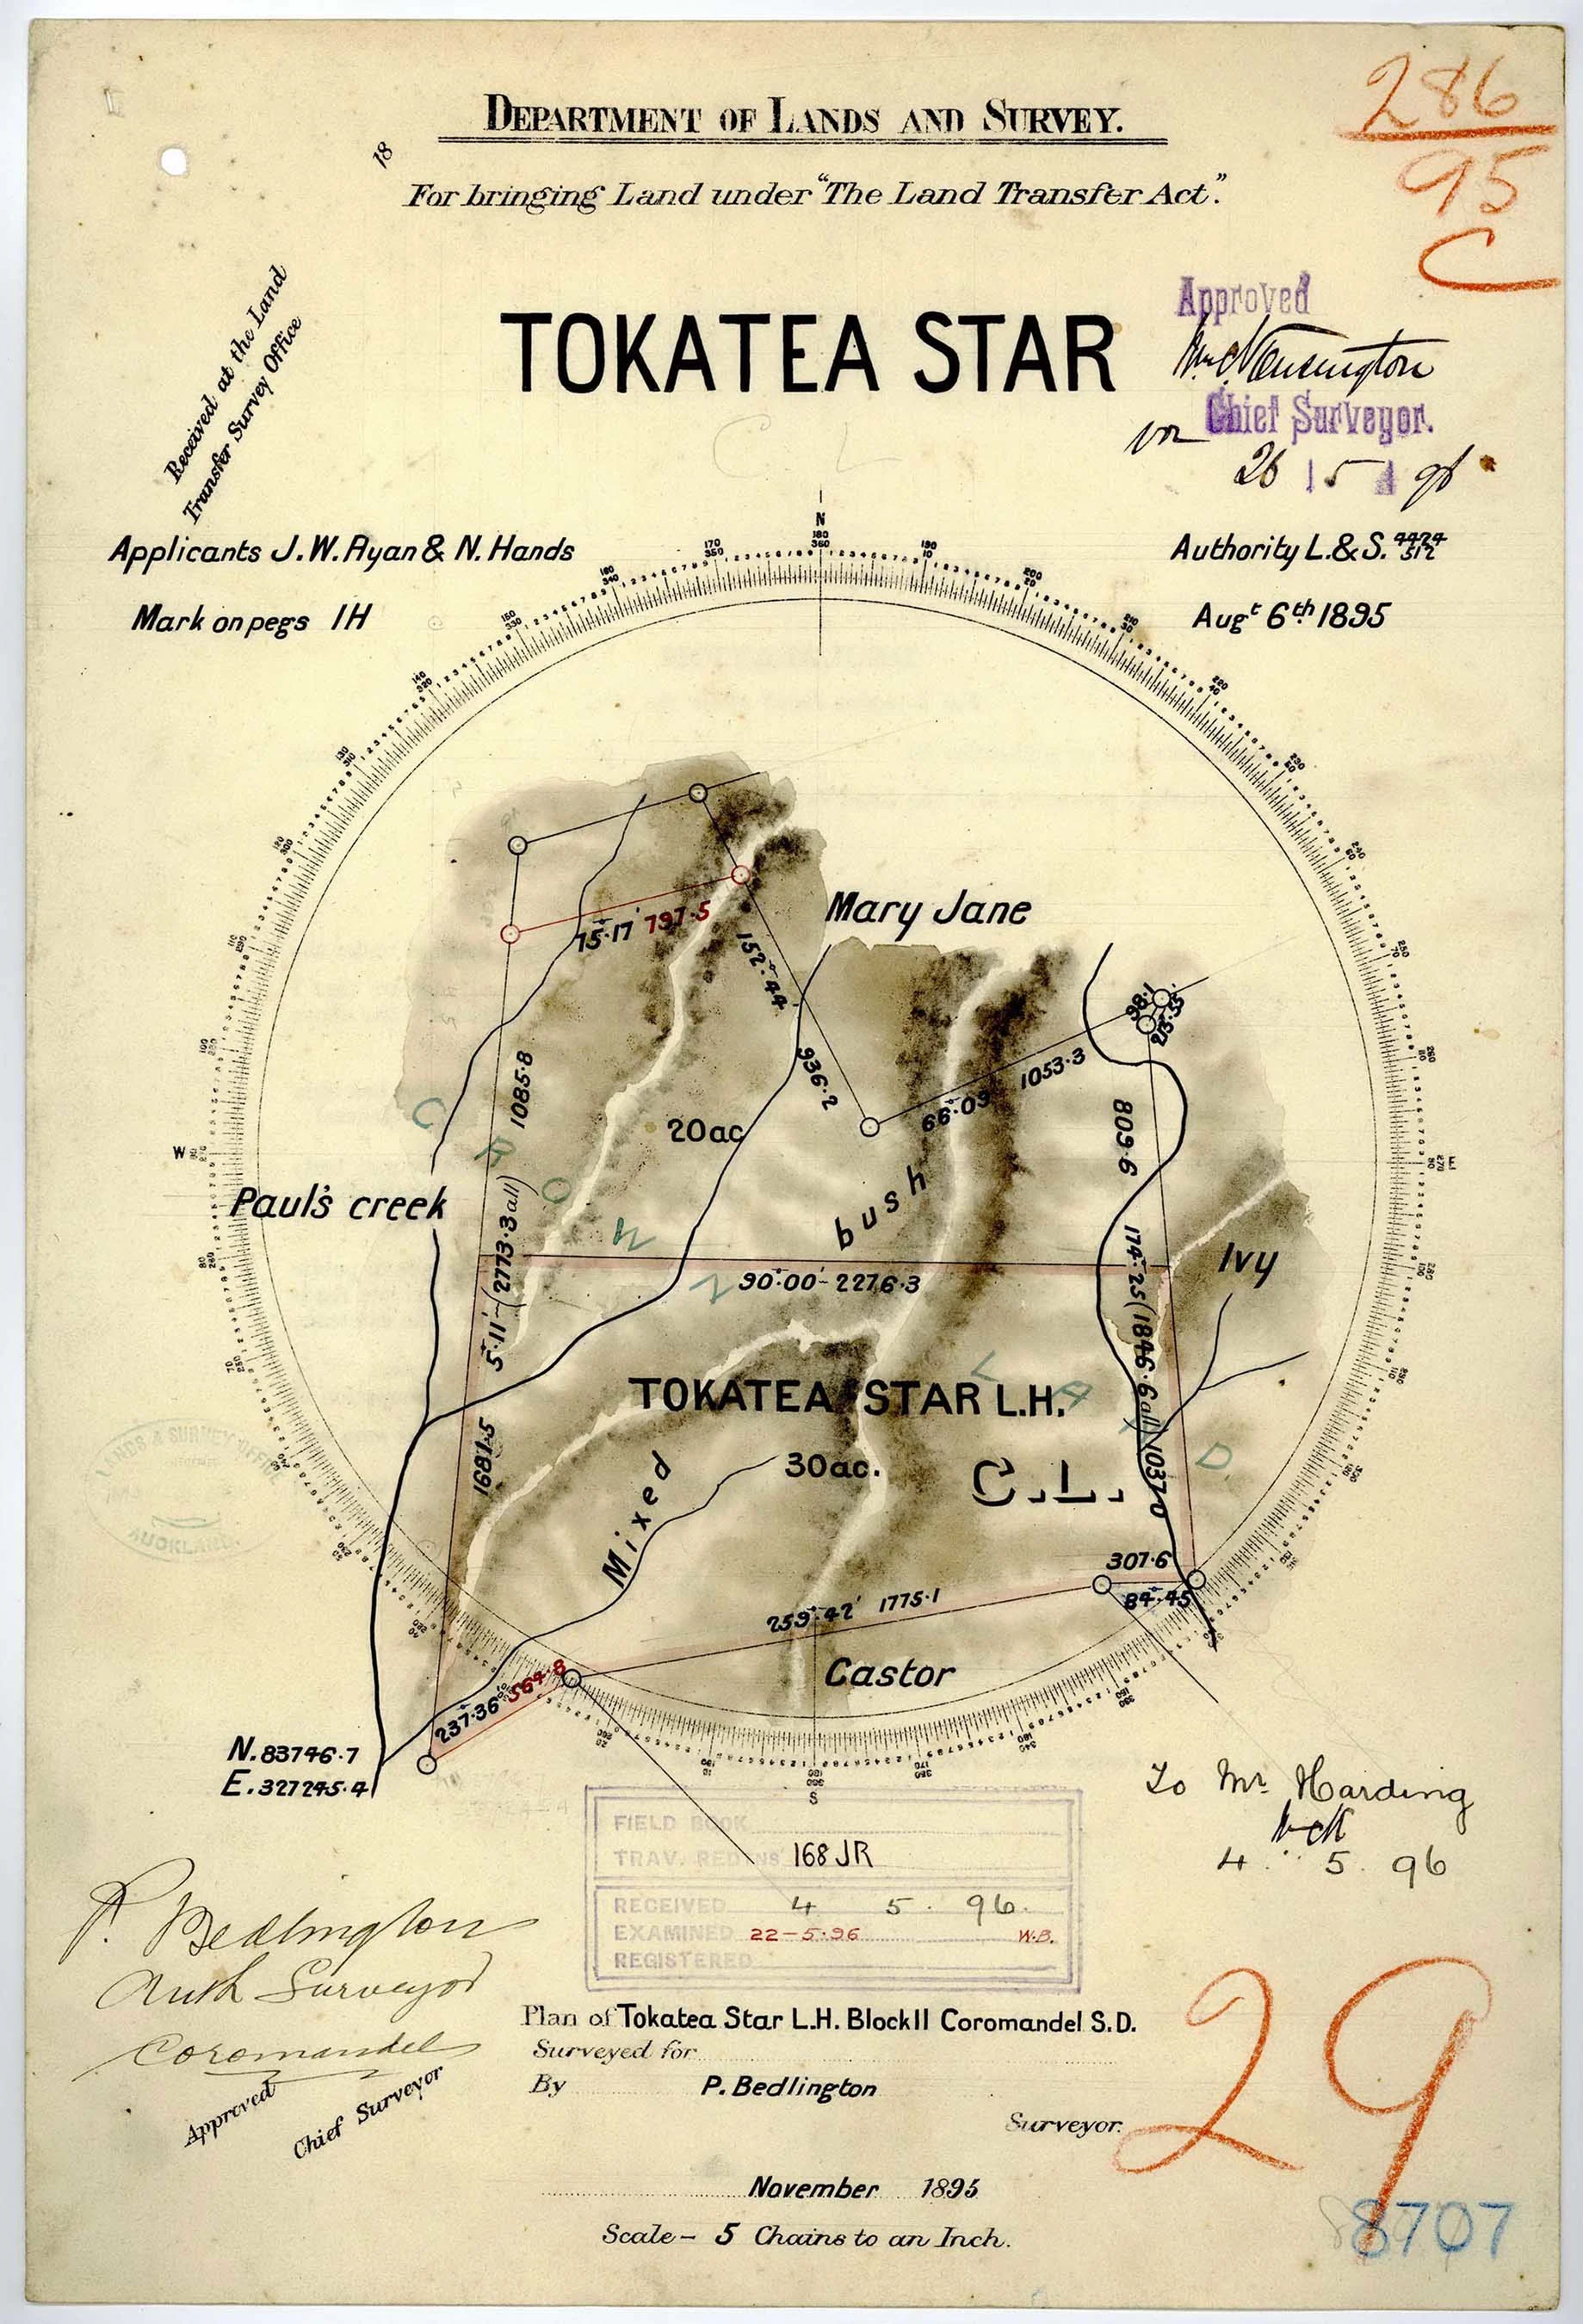 286
95
C
DEPARTMENT OF LANDS AND SURVEY.
18
For bringing Land under "The Land Transfer Act."
Received at the Land
Transfer Survey Office
TOKATEA STAR
Approved
Chief Surveyor.
26 5 96
C L
Applicants J.W. Ryan & N. Hands
Authority L.& S. 4424/512
Mark on pegs IH
Augt 6th 1895
N
Mary Jane
75°·17' 797·5
152°·44'
936·2
98·1
213·55
1053·3
66°·09'
1085·8
809·6
20ac
W
E
Paul's creek
bush
CROWN LAND.
Ivy
90°·00' – 2276·3
5°·11' – (2773·3 all)
174°·25' (1846·6 all)
TOKATEA STAR L.H.
1681·5
1037·0
30ac.
C.L.
Mixed
LANDS & SURVEY OFFICE
AUCKLAND.
307·6
84°·45'
259°·42' 1775·1
Castor
237°·36' 564·8
N. 83746·7
E. 327245·4
S
To Mr Harding
4. 5. 96
FIELD BOOK
TRAV. REDNS 168 JR
RECEIVED 4 5. 96.
EXAMINED 22–5·96 W.B.
REGISTERED
P. Bedlington
Auth Surveyor
Coromandel
Approved
Chief Surveyor
Plan of Tokatea Star L.H. Block II Coromandel S.D.
Surveyed for
By P. Bedlington
Surveyor.
November 1895
Scale – 5 Chains to an Inch.
29
8707